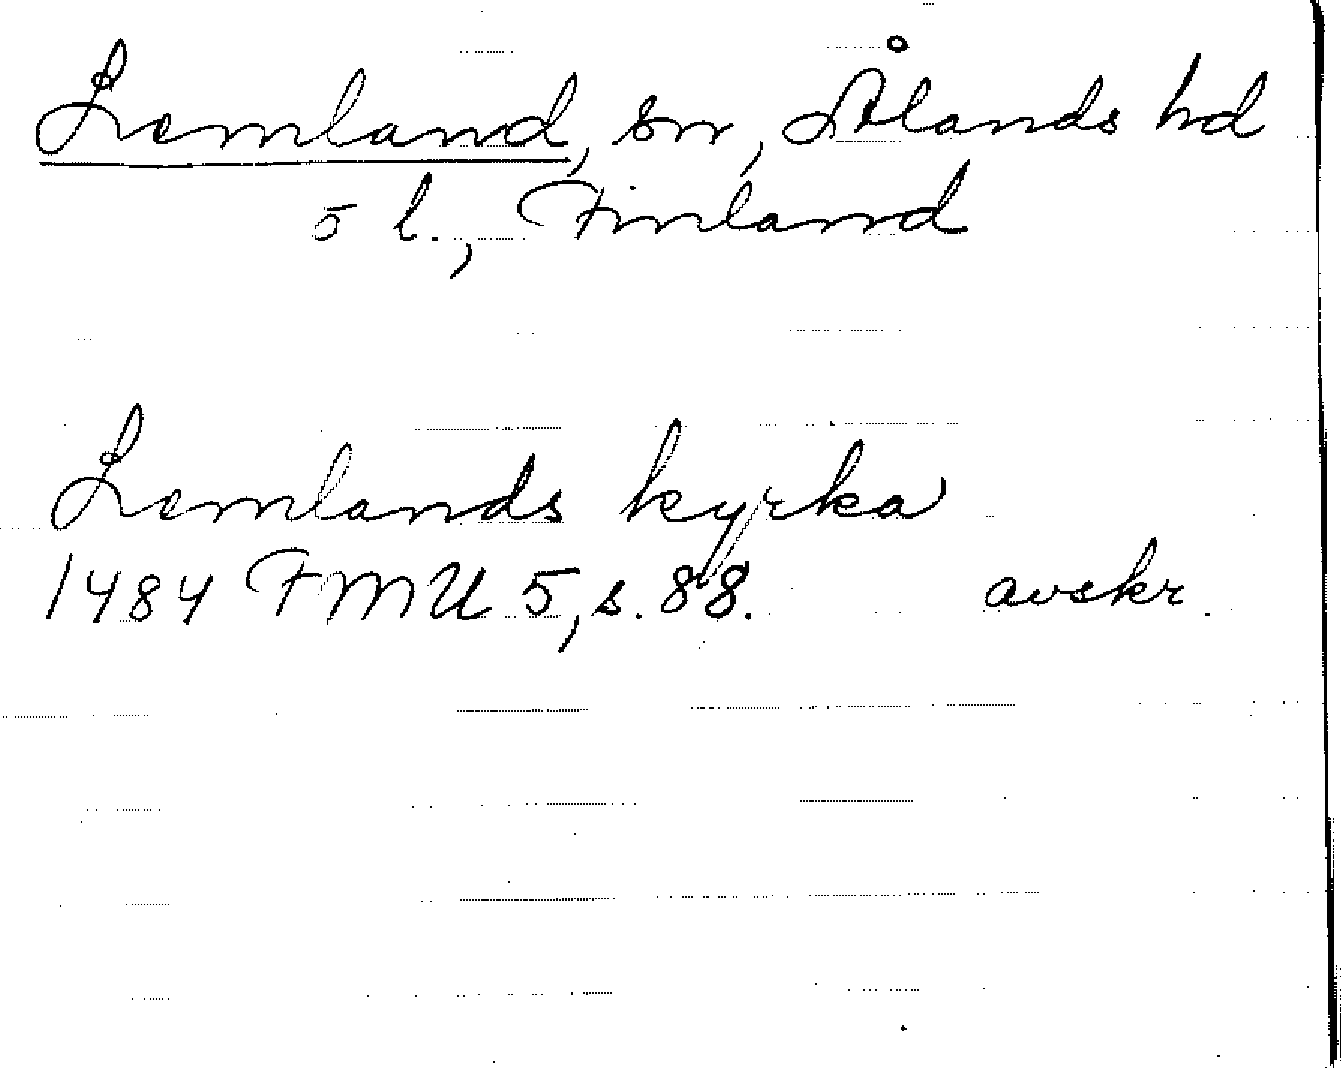 Lemland, sn, Ålands hd
5 l., Finland
Lemlands kyrka
1484 FMU 5, s. 88. avskr.